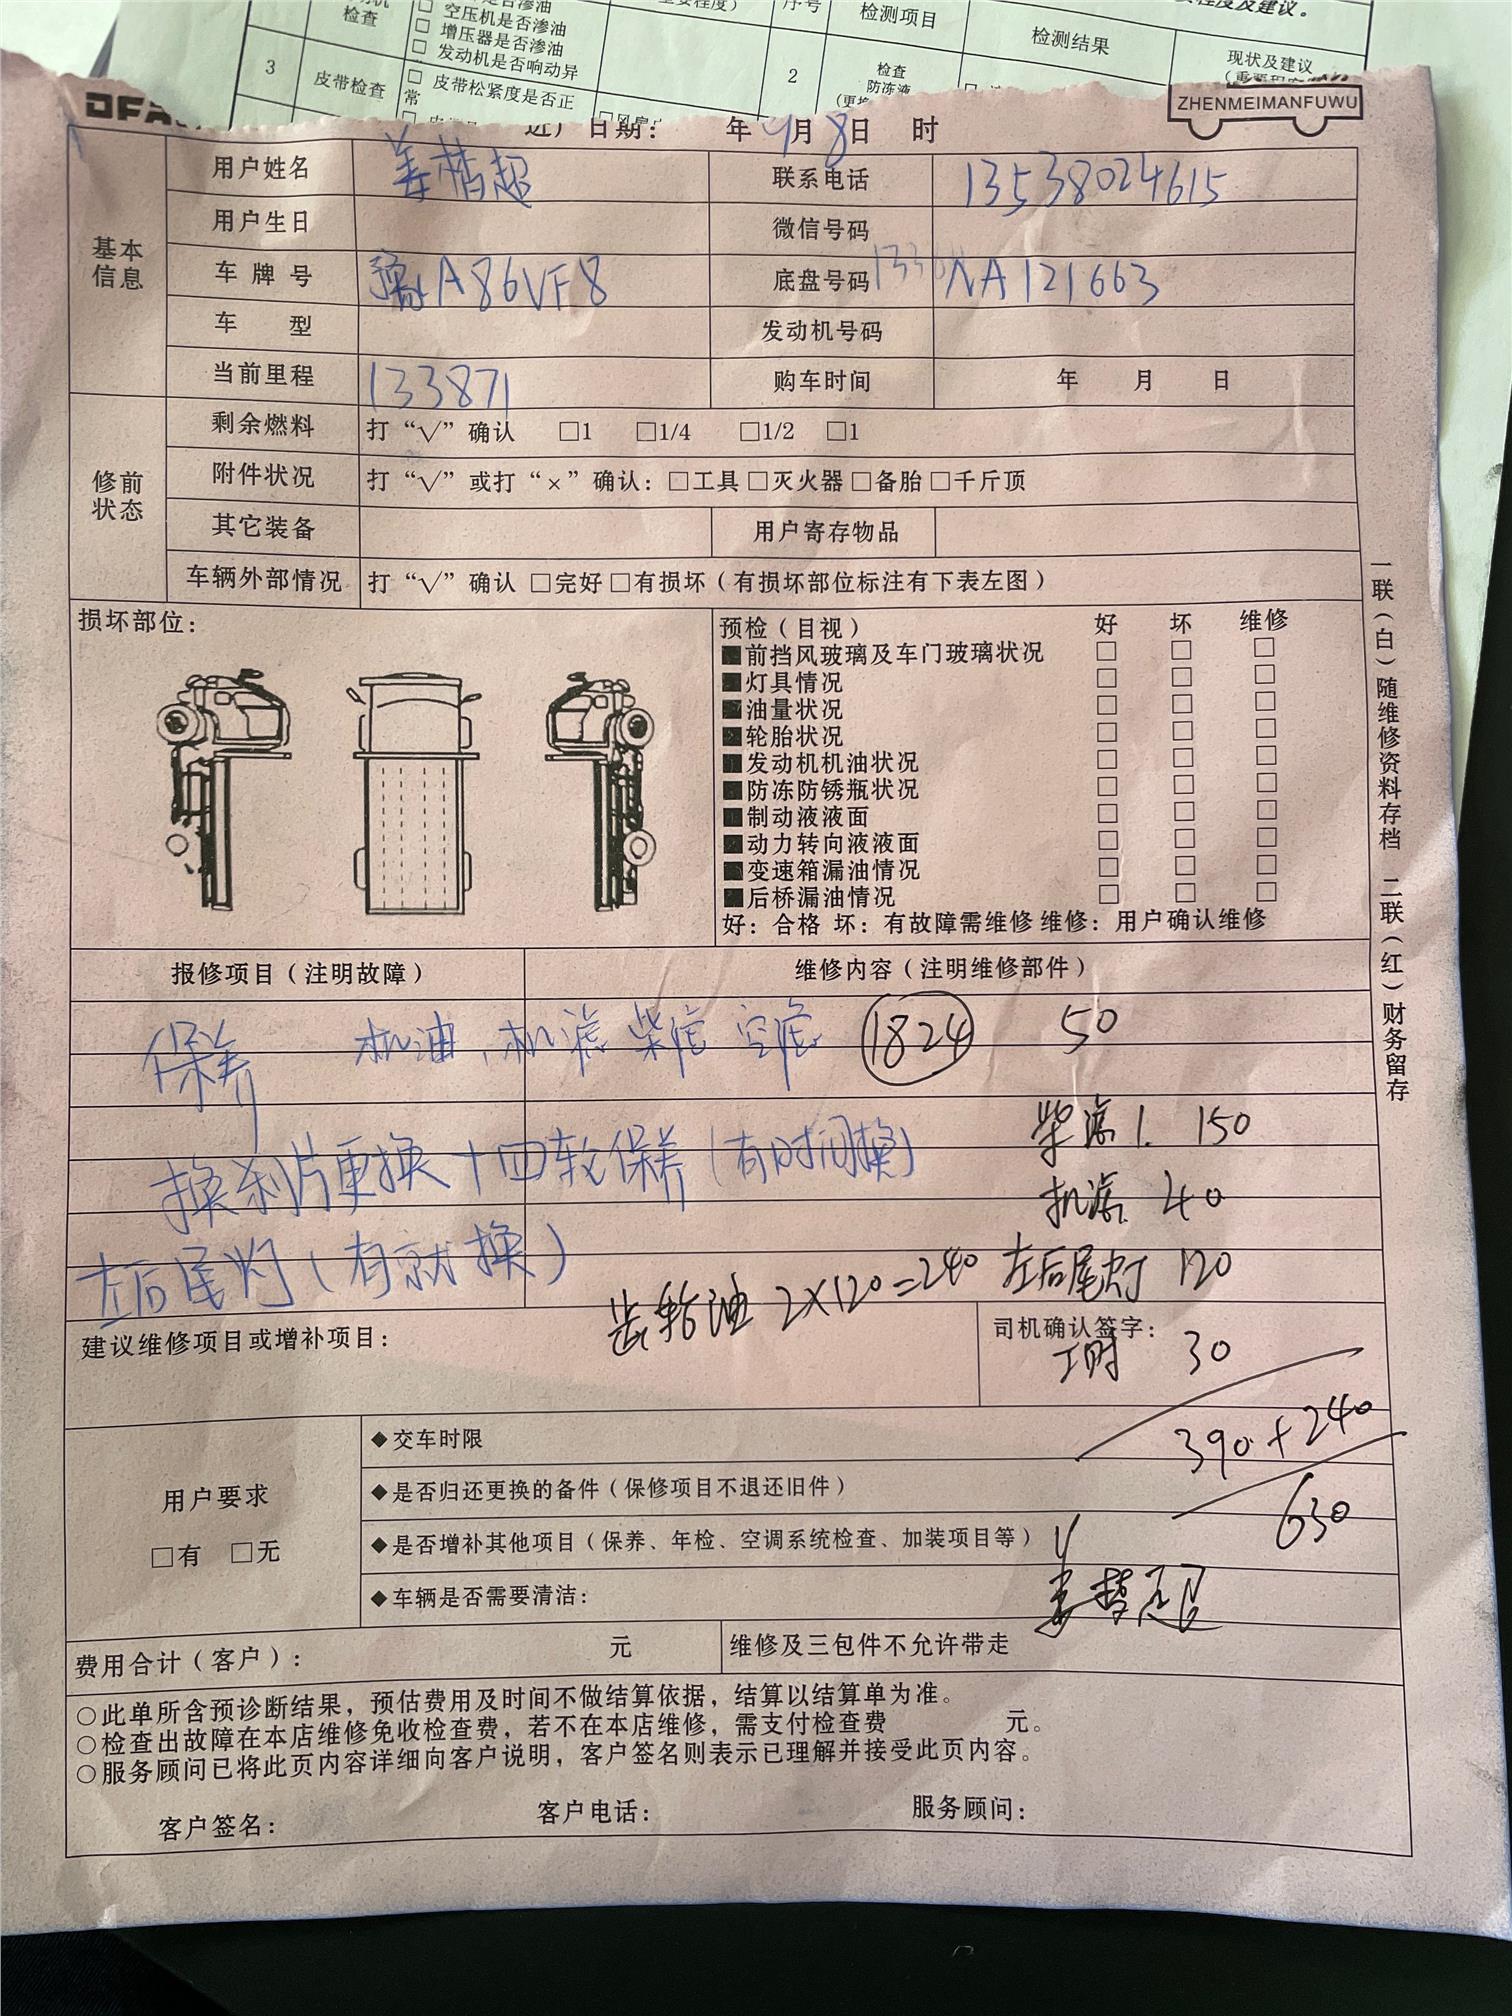 空压机是否渗油
检查
□ 增压器是否渗油
□ 发动机是否响动异
3 皮带检查 □ 皮带松紧度是否正
常
序号 检测项目 检测结果 现状及建议
程度及建议。
2 检查
防冻液
ZHENMEIMANFUWU
日期： 年 月8日 时
基本信息
用户姓名 姜楷超 联系电话 13538024615
用户生日 微信号码
车牌号 豫A86VF8 底盘号码 NA121663
车 型 发动机号码
当前里程 133871 购车时间 年 月 日
修前状态
剩余燃料 打“√”确认 □1 □1/4 □1/2 □1
附件状况 打“√”或打“×”确认：□工具□灭火器□备胎□千斤顶
其它装备 用户寄存物品
车辆外部情况 打“√”确认 □完好□有损坏（有损坏部位标注有下表左图）
损坏部位：
预检（目视） 好 坏 维修
■前挡风玻璃及车门玻璃状况 □ □ □
■灯具情况 □ □ □
■油量状况 □ □ □
■轮胎状况 □ □ □
■发动机机油状况 □ □ □
■防冻防锈瓶状况 □ □ □
■制动液液面 □ □ □
■动力转向液液面 □ □ □
■变速箱漏油情况 □ □ □
■后桥漏油情况 □ □ □
好：合格 坏：有故障需维修 维修：用户确认维修
报修项目（注明故障） 维修内容（注明维修部件）
保养 机油，机滤 柴滤 空滤 1824 50
柴滤1. 150
换刹片更换十四轮保养（有时间换）
机滤 40
左后尾灯（有就换）
齿轮油 2×120=240 左后尾灯 120
建议维修项目或增补项目： 司机确认签字：
工时 30
390+240
630
用户要求
□有 □无
◆交车时限
◆是否归还更换的备件（保修项目不退还旧件）
◆是否增补其他项目（保养、年检、空调系统检查、加装项目等）
◆车辆是否需要清洁：
姜楷超
费用合计（客户）： 元 维修及三包件不允许带走
○此单所含预诊断结果，预估费用及时间不做结算依据，结算以结算单为准。
○检查出故障在本店维修免收检查费，若不在本店维修，需支付检查费 元。
○服务顾问已将此页内容详细向客户说明，客户签名则表示已理解并接受此页内容。
客户签名： 客户电话： 服务顾问：
一联（白）随维修资料存档 二联（红）财务留存